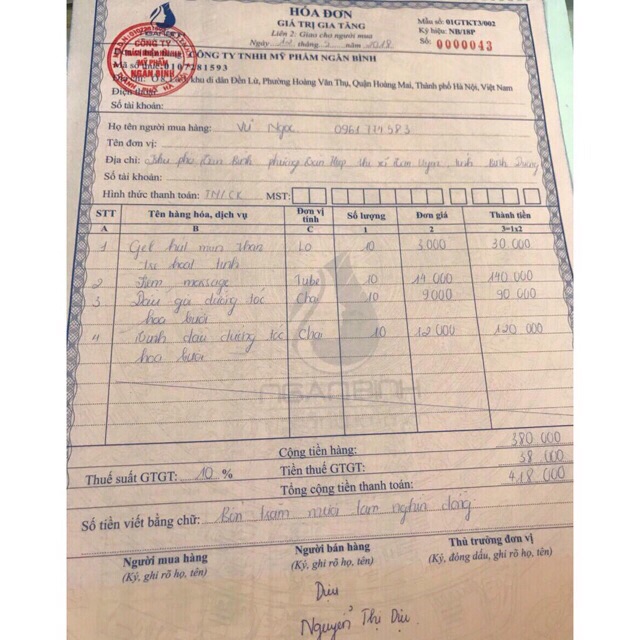 HÓA ĐƠN
GIÁ TRỊ GIA TĂNG
Liên 2: Giao cho người mua
Ngày tháng 5 năm 2018
Mẫu số: 01GTKT3/002
Ký hiệu: NB/18P
Số: 0000043
CÔNG TY TNHH MỸ PHẨM NGÂN BÌNH
CÔNG TY
MỸ PHẨM
NGÂN BÌNH
Mã số thuế: 0107281593
khu di dân Đền Lừ, Phường Hoàng Văn Thụ, Quận Hoàng Mai, Thành phố Hà Nội, Việt Nam
Điện thoại:
Số tài khoản:
Họ tên người mua hàng: Vũ Ngọc 0961774383
Tên đơn vị:
Địa chỉ: Khu phố Tân Bình, phường Tân Hiệp, thị xã Tân Uyên, tỉnh Bình Dương
Số tài khoản:
Hình thức thanh toán: TM/CK MST:
STT Tên hàng hóa, dịch vụ Đơn vị tính Số lượng Đơn giá Thành tiền
A B C 1 2 3=1x2
1 Gel hút mụn than Lọ 10 3.000 30 000
hoạt tính
2 Kem massage Tube 10 14 000 140 000
3 Dầu gội dưỡng tóc Chai 10 9000 90 000
hoa bưởi
4 Tinh dầu dưỡng tóc Chai 10 12 000 120 000
hoa bưởi
NGANBINH
Cộng tiền hàng: 380 000
Thuế suất GTGT: 10 % Tiền thuế GTGT: 38 000
Tổng cộng tiền thanh toán: 418 000
Số tiền viết bằng chữ: Bốn trăm mười tám nghìn đồng
Người mua hàng Người bán hàng Thủ trưởng đơn vị
(Ký, ghi rõ họ, tên) (Ký, ghi rõ họ, tên) (Ký, đóng dấu, ghi rõ họ, tên)
Dịu
Nguyễn Thị Dịu